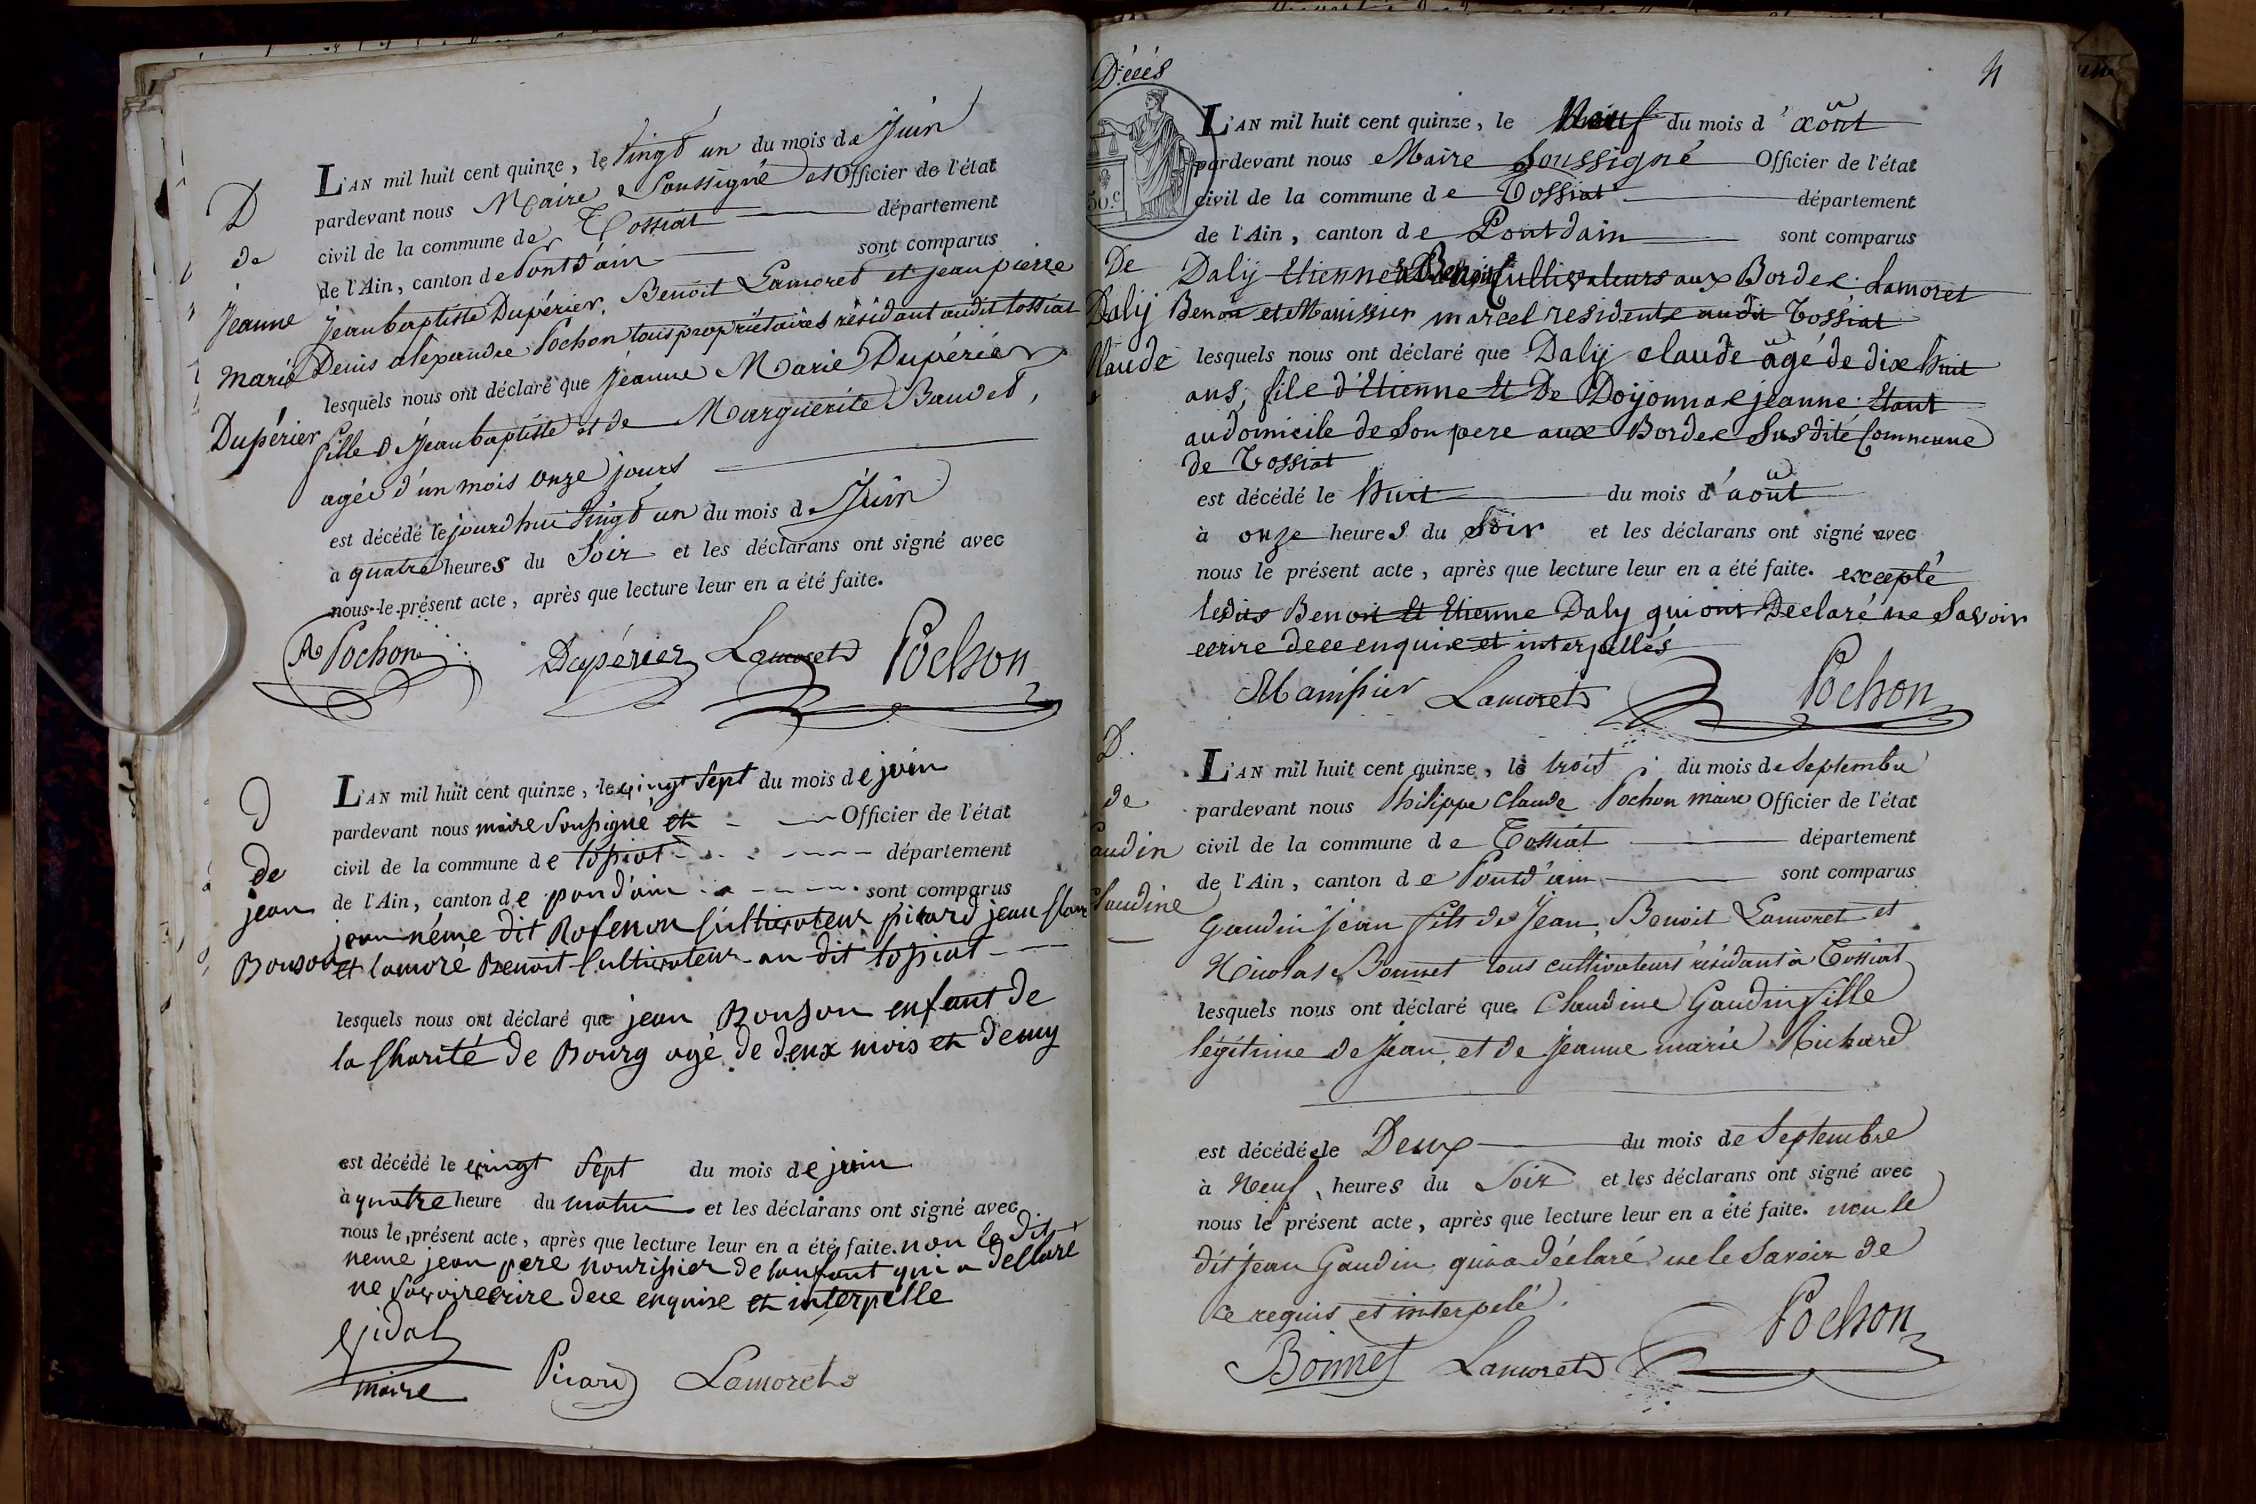 D
de
Jeanne
marie
Dupérier
L'AN mil huit cent quinze, le vingt un du mois de Juin
pardevant nous Maire Soussigné et Officier de l'état
civil de la commune de Tossiat département
de l'Ain, canton de Pontd'ain sont comparus
Jeanbaptiste Dupérier, Benoit Lamoret et jeanpierre
Denis alexandre Pochon tous propriétaires résidant audit tossiat
lesquels nous ont déclaré que Jeanne Marie Dupérier
fille de Jeanbaptiste et de Marguerite Baudet,
agée d'un mois onze jours
est décédé le jourdhui vingt un du mois de Juin
à quatre heures du Soir et les déclarans ont signé avec
nous le présent acte, après que lecture leur en a été faite.
Pochon Dupérier Lamoret Pochon
D
de
jean
Bonson
L'AN mil huit cent quinze, le vingt sept du mois de juin
pardevant nous maire soussigné et Officier de l'état
civil de la commune de tossiat département
de l'Ain, canton de pondain sont comparus
jean néme dit Rofenon Cultivateur picard jean
et lamoré Benoit Cultivateur au dit tossiat
lesquels nous ont déclaré que jean Bonson enfant de
la Charité de Bourg agé de deux mois et demy
est décédé le vingt sept du mois de juin
à quatre heure du matin et les déclarans ont signé avec
nous le présent acte, après que lecture leur en a été faite. non le dit
neme jean pere nourissier de lenfant qui a dellaré
ne savoire ecrire dece enquise et interpelle
Vidal
maire Picard Lamoret
Décés
4
50.c
De
Dalij
Claude
L'AN mil huit cent quinze, le Neuf du mois d'août
pardevant nous Maire Soussigné Officier de l'état
civil de la commune de Tossiat département
de l'Ain, canton de Pontdain sont comparus
Dalij Etienne Benoit Cultivateurs aux Bordes. Lamoret
Benoit et Manissier marcel residents audit Tossiat
lesquels nous ont déclaré que Dalij claude âgé de dix huit
ans, fils d'Etienne Et De Doijonnax jeanne. Etant
audomicile de Son pere aux Bordes Susdite Commune
de Tossiat
est décédé le huit du mois d'août
à onze heures du Soir et les déclarans ont signé avec
nous le présent acte, après que lecture leur en a été faite. excepté
lesdits Benoit Et Etienne Daly qui ont Declaré ne Savoir
ecrire dece enquis et interpellés
Manissier Lamoret Pochon
D.
de
Gaudin
Claudine
L'AN mil huit cent quinze, le trois du mois de Septembre
pardevant nous Philippe Claude Pochon maire Officier de l'état
civil de la commune de Tossiat département
de l'Ain, canton de Pontd'ain sont comparus
Gaudin Jean fils de Jean, Benoit Lamoret et
Nicolas Bonnet tous cultivateurs résidant à Tossiat
lesquels nous ont déclaré que Claudine Gaudin fille
légitime de Jean et de Jeanne marie Richard
est décédée le Deux du mois de Septembre
à Neuf heures du Soir et les déclarans ont signé avec
nous le présent acte, après que lecture leur en a été faite. non le
dit Jean Gaudin qui a déclaré ne le Savoir de
ce requis et interpelé.
Bonnet Lamoret Pochon